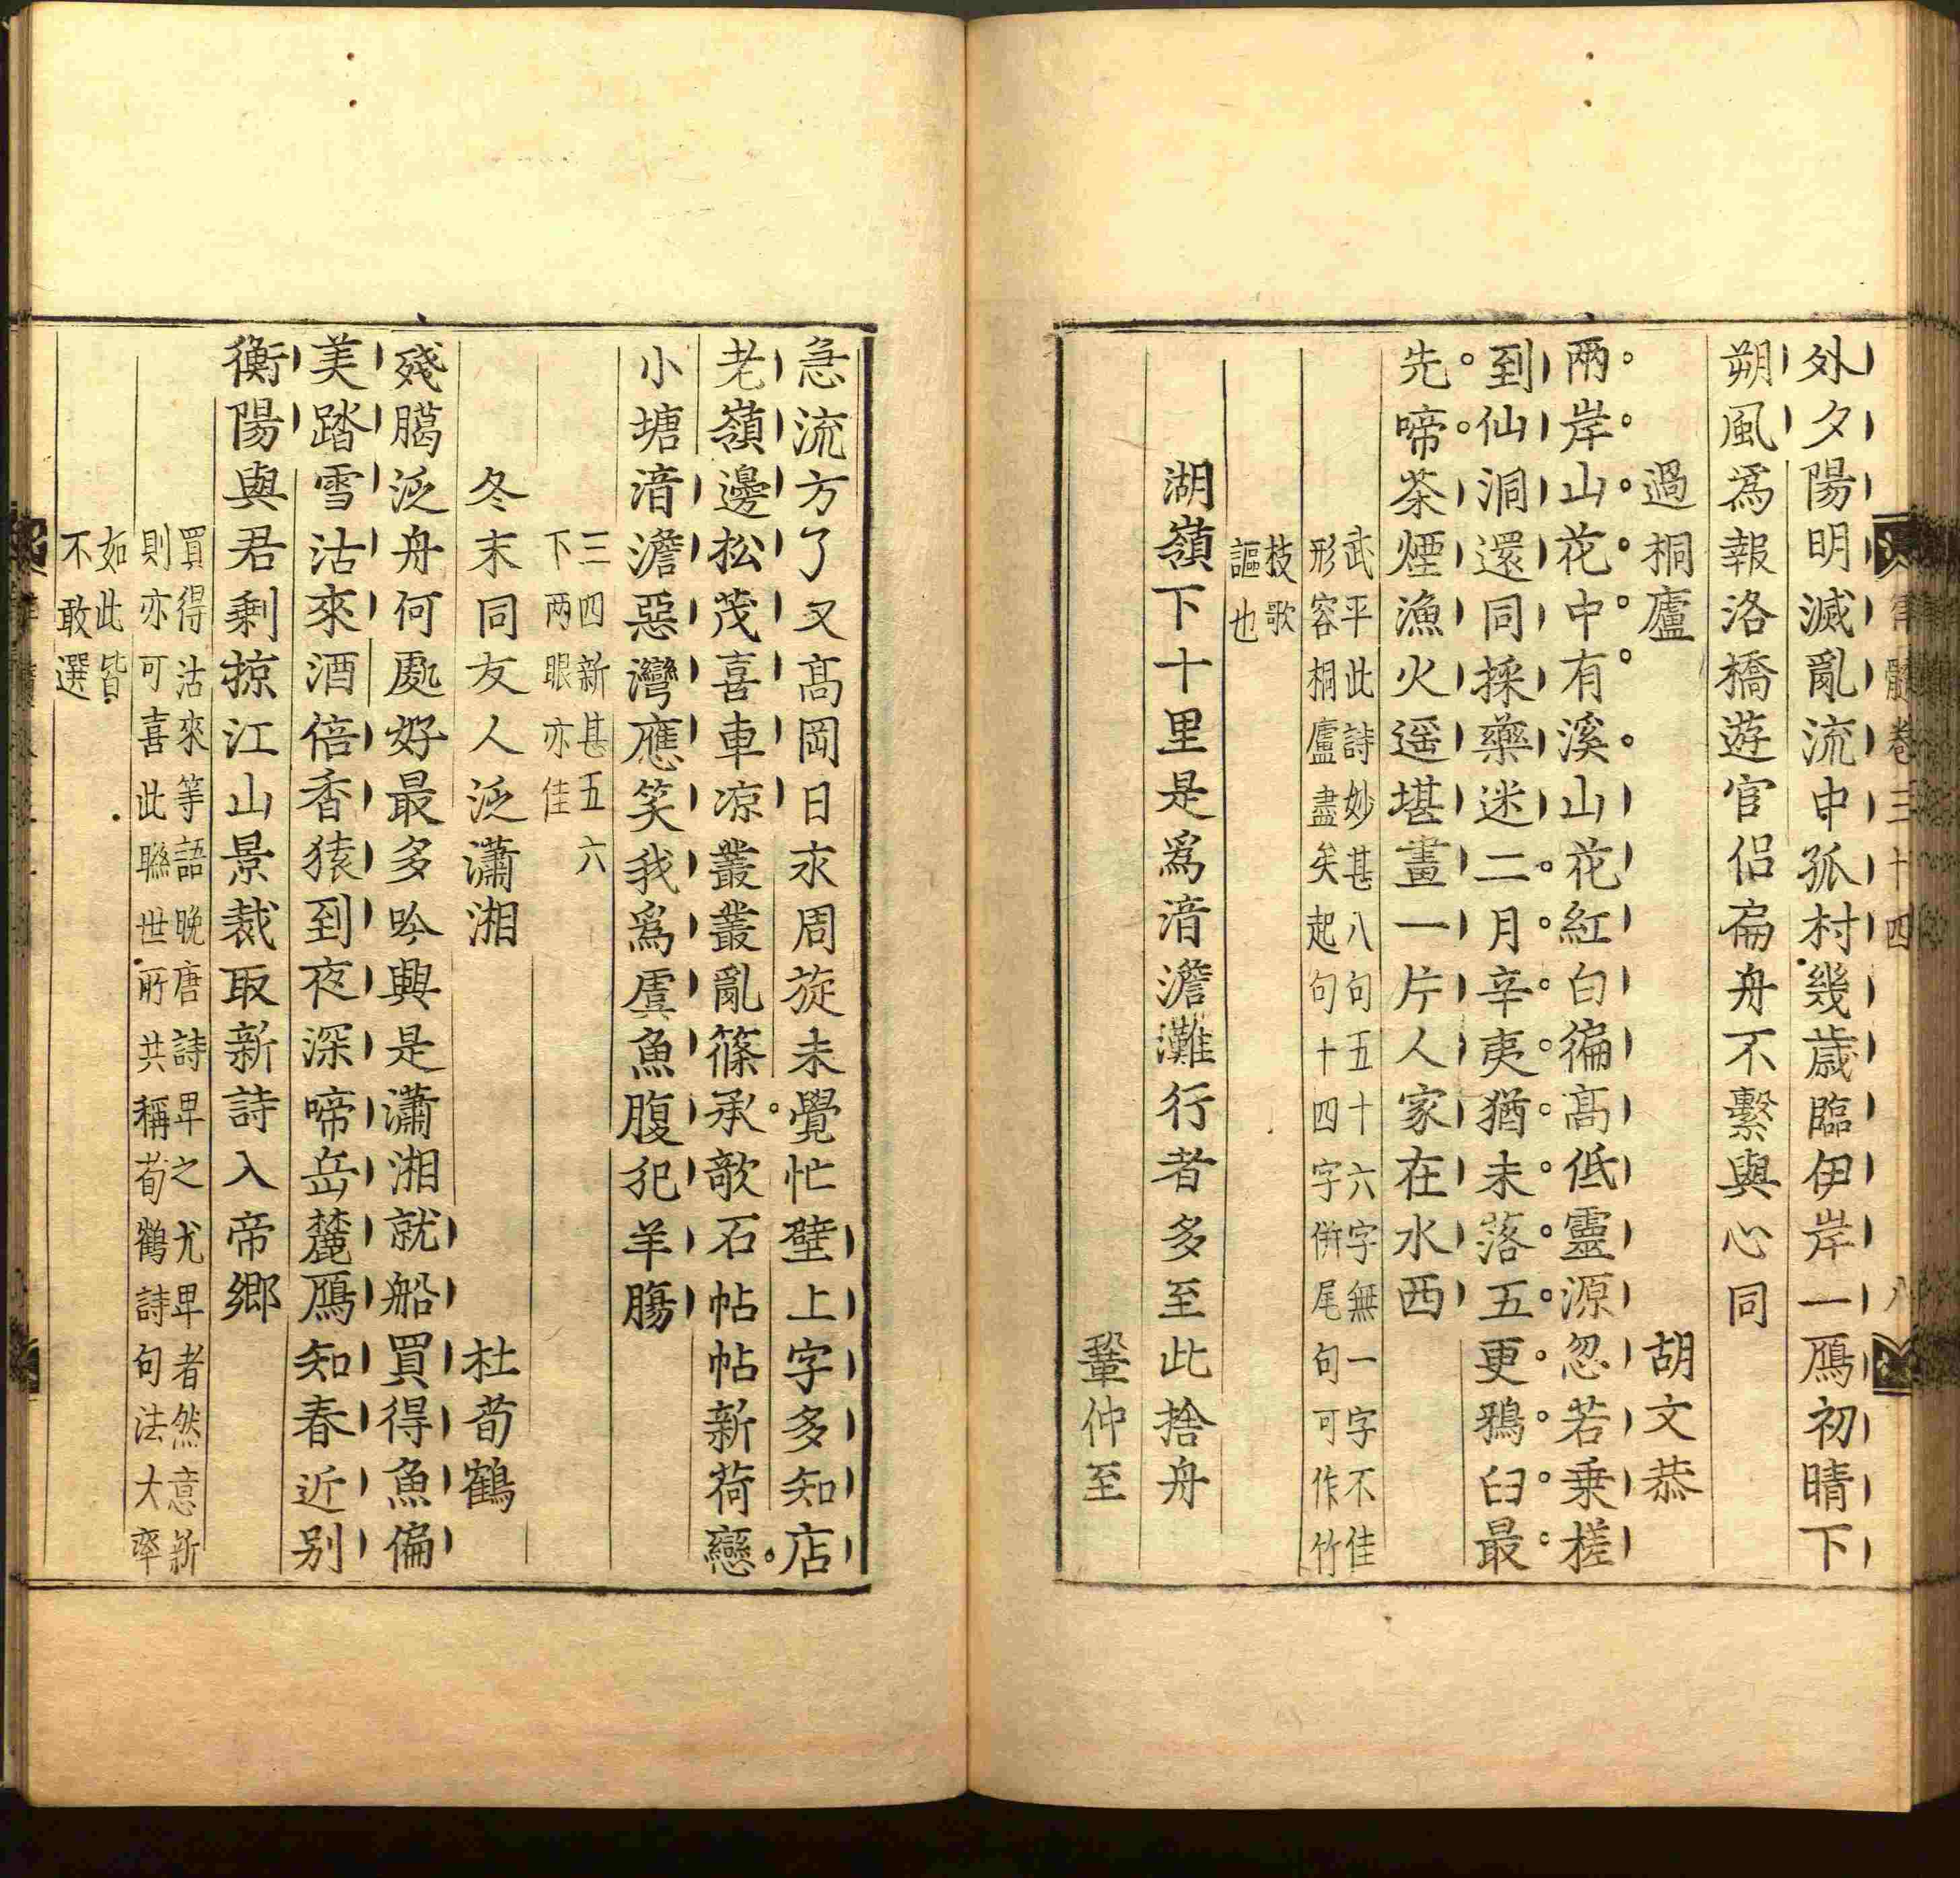 律髓卷三十四
八
外夕陽明滅亂流中孤村幾歲臨伊岸一鴈初晴下
朔風爲報洛橋遊官侣扁舟不繫與心同
過桐廬
胡文恭
兩岸山花中有溪山花紅白徧髙低靈源忽若乗槎
到仙洞還同採藥迷二月辛夷猶未落五更鵶臼最
先啼茶煙漁火遥堪畫一片人家在水西
武平此詩妙甚八句五十六字無一字不佳
形容桐廬盡矣起句十四字併尾句可作竹
枝歌
謳也
湖嶺下十里是爲湆澹灘行者多至此捨舟
鞏仲至
急流方了又髙岡日求周旋未覺忙壁上字多知店
老嶺邊松茂喜車凉叢叢亂篠承欹石帖帖新荷戀
小塘湆澹惡灣應笑我爲虞魚腹犯羊腸
三四新甚五六
下两眼亦佳
冬末同友人泛瀟湘
杜荀鶴
殘臈泛舟何處好最多吟興是瀟湘就船買得魚偏
美踏雪沽來酒倍香猿到夜深啼岳麓鴈知春近别
衡陽與君剩掠江山景裁取新詩入帝鄉
買得沽來等語晚唐詩卑之尤卑者然意新
則亦可喜此聮世所共稱荀鶴詩句法大率
如此皆
不敢選